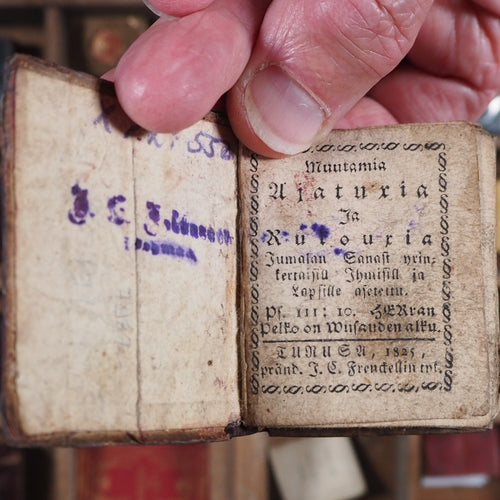 Muutamia
Ajatuxia
Ja
Rukouxia
Jumalan Sanast yxin-
kertaisill Ihmisill ja
Lapsille asetettu.
Ps. 111: 10. HERran
Pelko on Wijsauden alku.
TURUSA, 1825,
pränd. J. C. Frenckellin tyk.